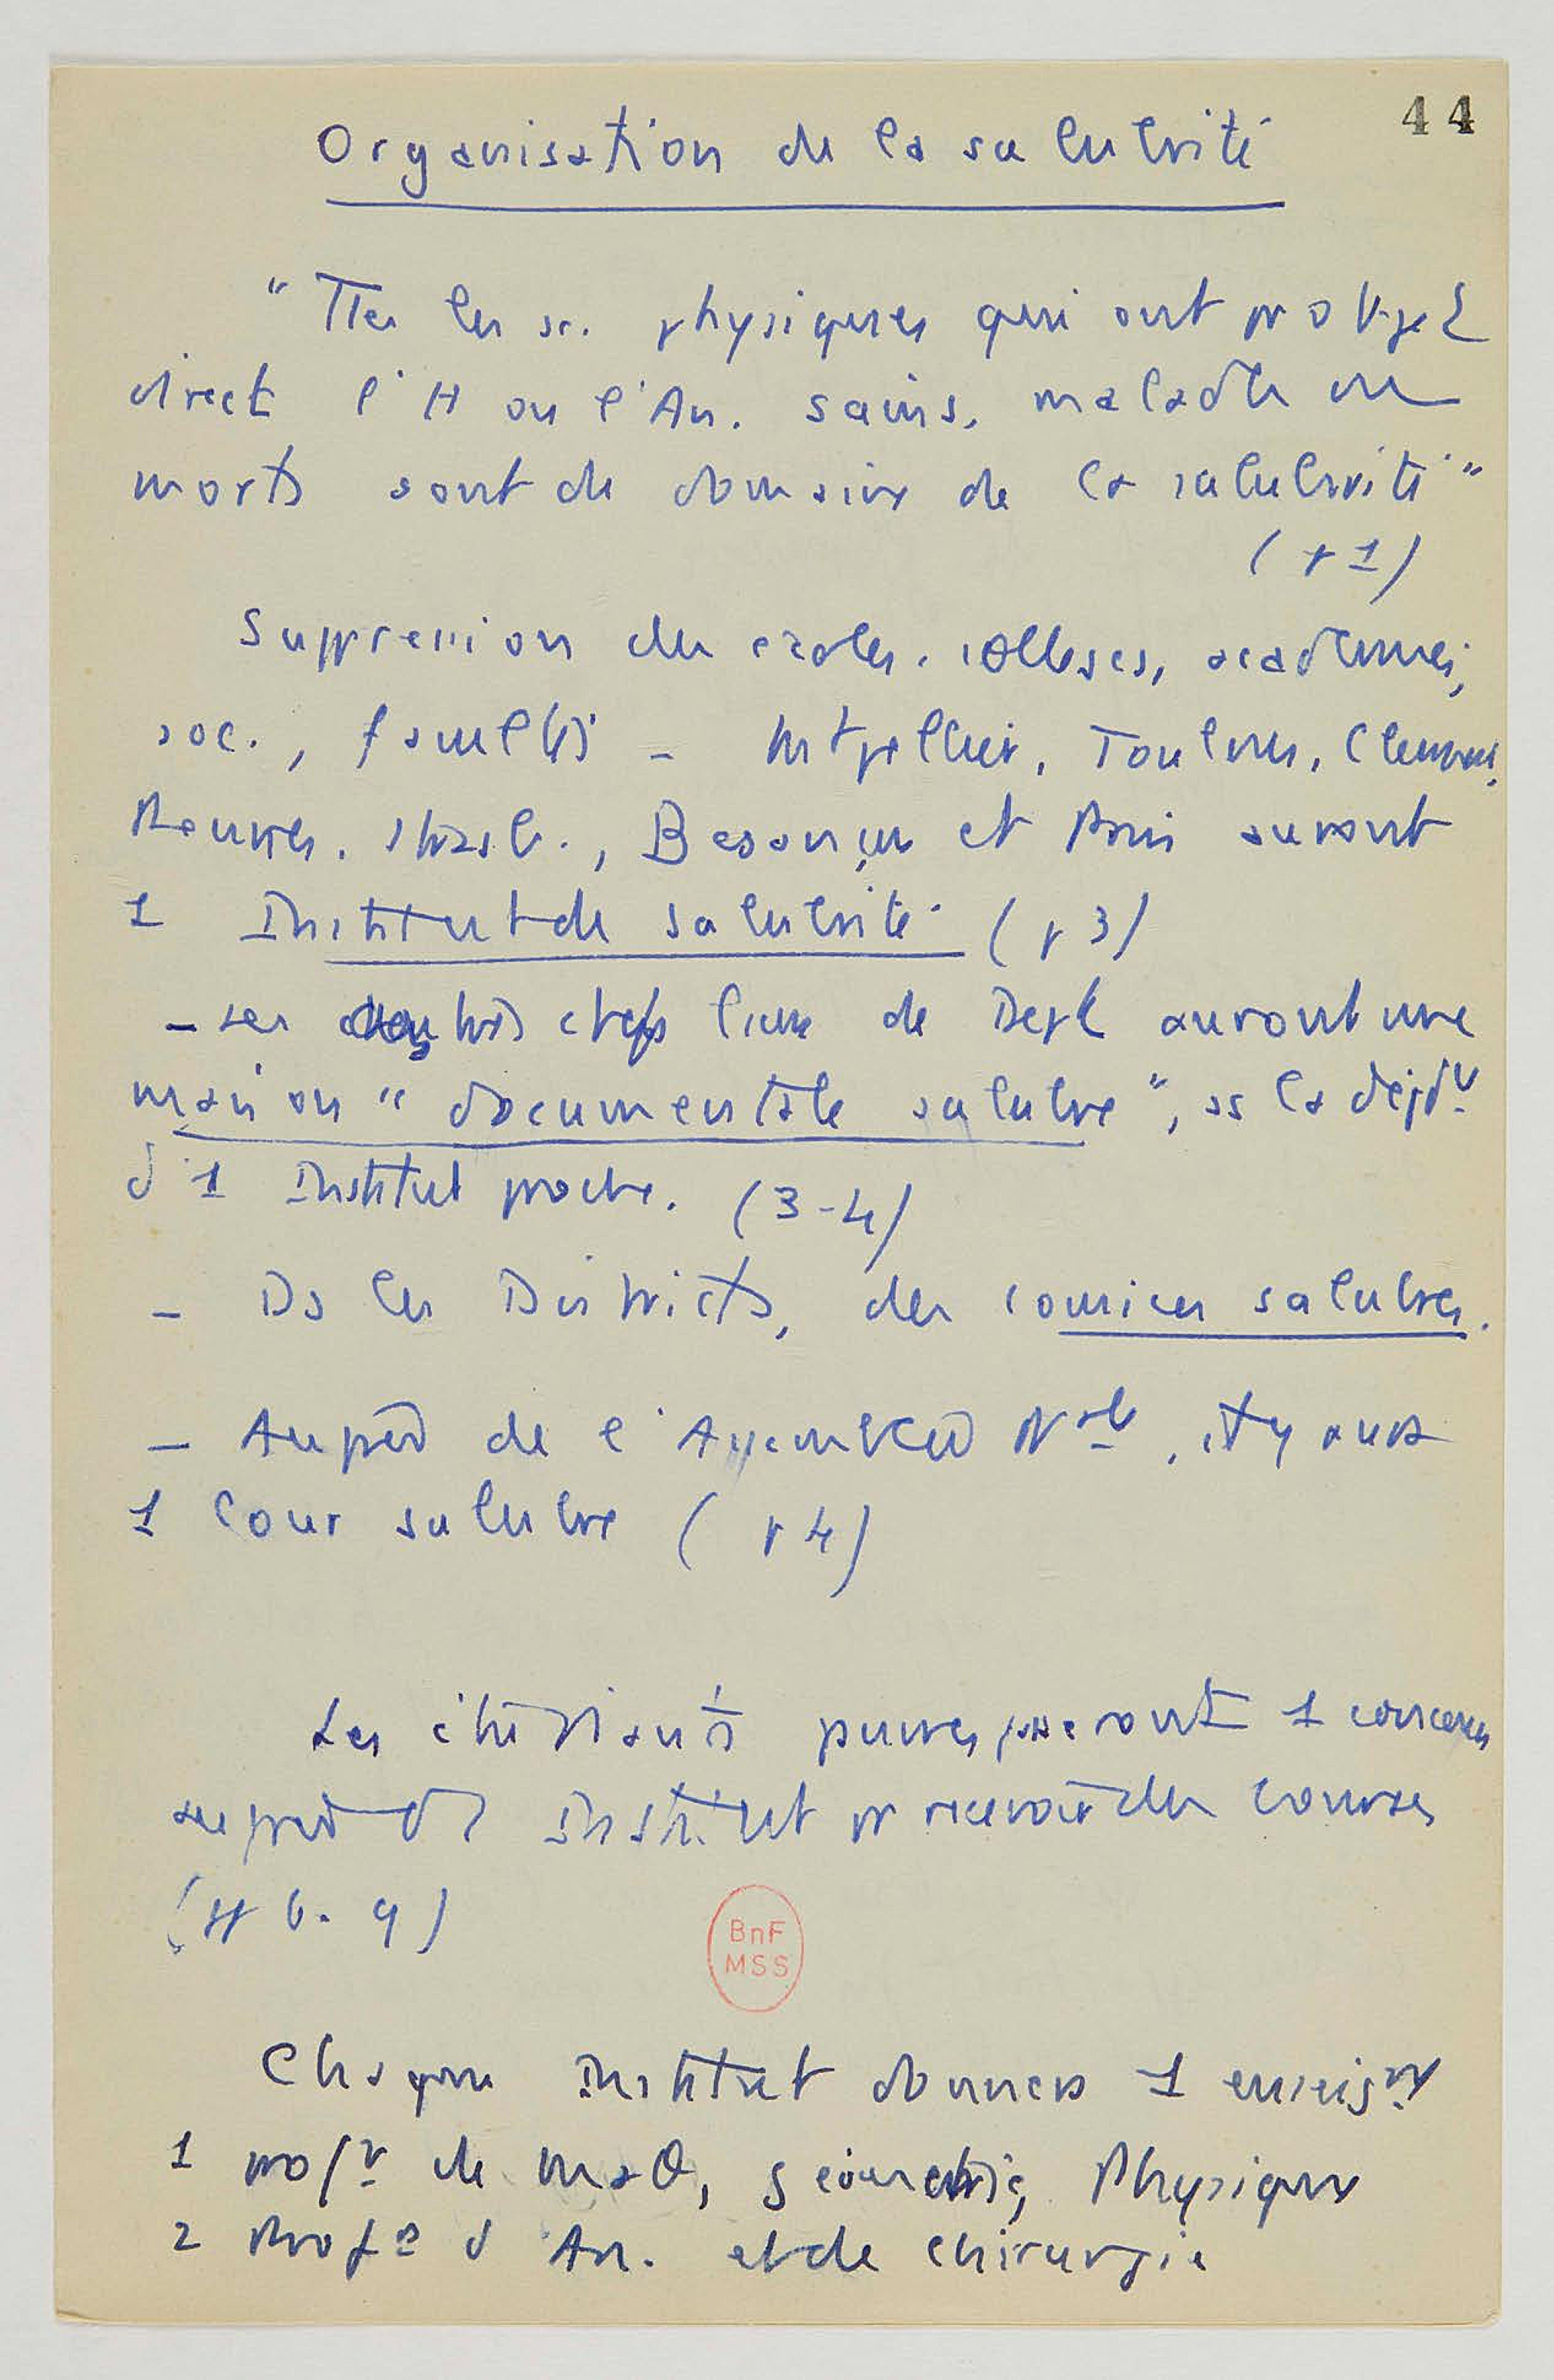 44
Organisation de la salubrité
"Ttes les sc. physiques qui ont pr objet
direct l'H ou l'An. sains, malades ou
morts sont du domaine de la salubrité"
(p 1)
Suppression des écoles, collèges, académies,
soc., facultés - Mtpellier, Toulouse, Clermont,
Rennes, Strasb., Besançon et Paris auront
1 Institut de salubrité (p 3)
- Les autres chefs lieux de Dept auront une
maison "documentale salubre", ss la dépd.
d'1 Institut proche. (3-4)
- Ds les Districts, des comices salubres.
- Auprès de l'Assemblée Nale, il y aura
1 Cour salubre (p 4)
Les étudiants pauvres passeront 1 concours
auprès de l'Institut pr recevoir des bourses
(pp 6-9)
BnF
MSS
Chaque Institut donnera 1 enseignt
1 profr de Math, géométrie, Physique
2 Profrs d'An. et de chirurgie